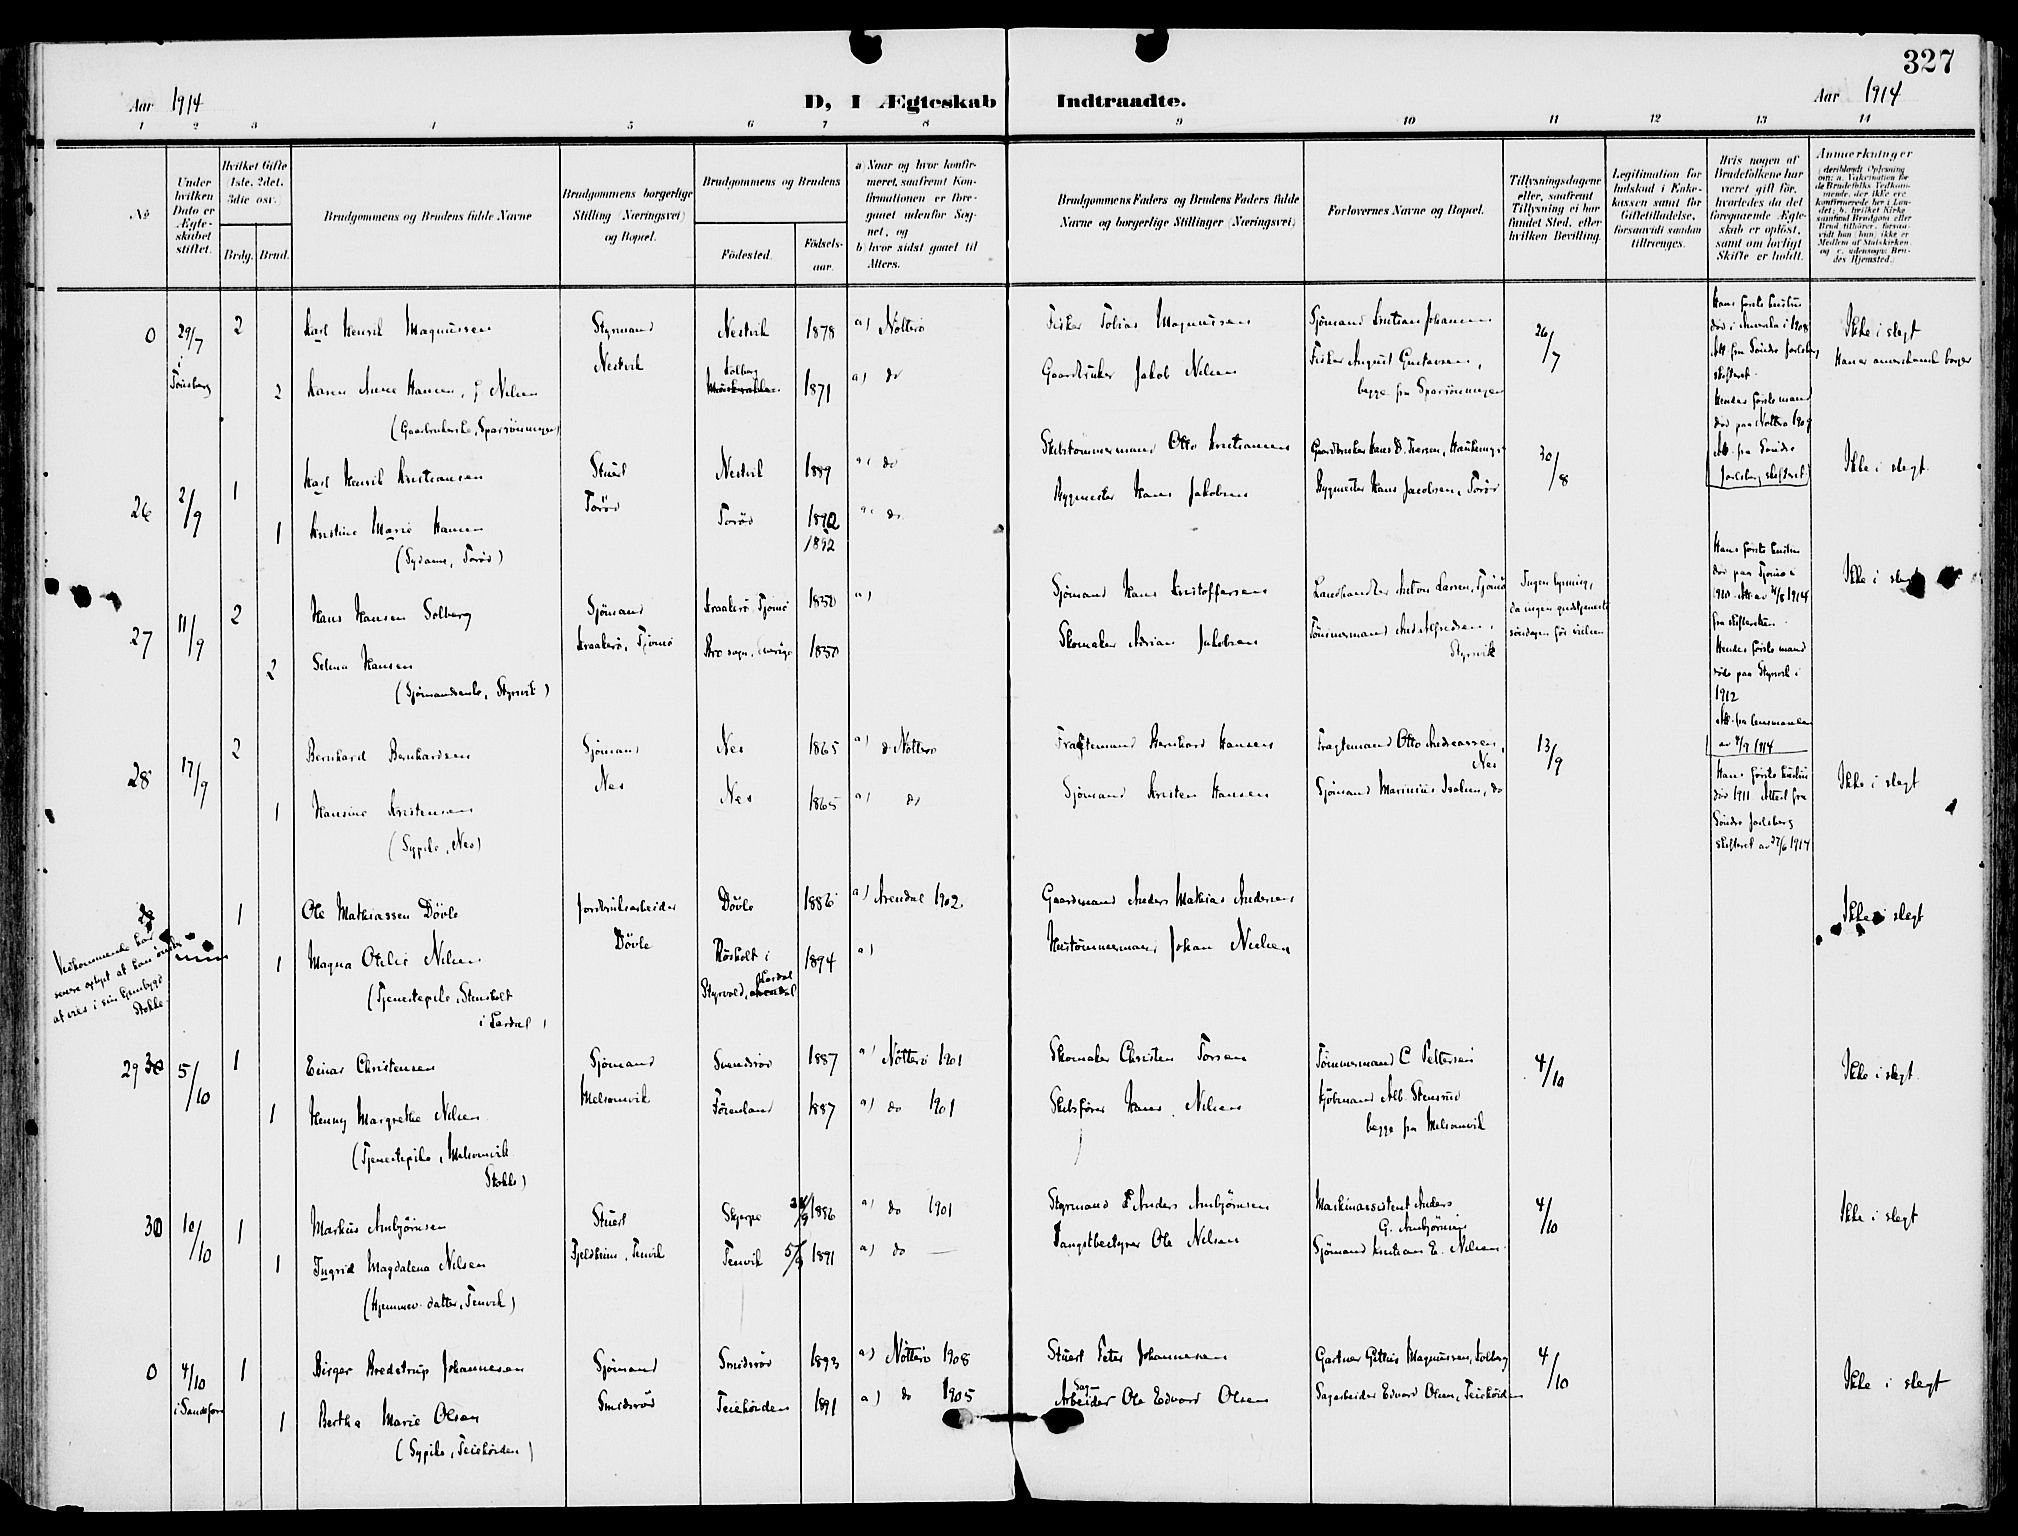 327
Aar 1914
D, I Ægteskab Indtraadte.
Aar 1914
1 2 3 4 5 6 7 8 9 10 11 12 13 14
No
Under hvilken Dato er Ægteskabet stiftet.
Hvilket Gifte 1ste, 2det, 3die osv.
Brdg. Brud.
Brudgommens og Brudens fulde Navne
Brudgommens borgerlige Stilling (Næringsvei) og Bopæl.
Brudgommens og Brudens
Födested.
Födselsaar.
a) Naar og hvor konfirmeret, saafremt Konfirmationen er foregaaet udenfor Sognet, og
b) hvor sidst gaaet til Alters.
Brudgommens Faders og Brudens Faders fulde Navne og borgerlige Stillinger (Næringsvei)
Forlovernes Navne og Bopæl.
Tillysningsdagene eller, saafremt Tillysning ei har fundet Sted, efter hvilken Bevilling.
Legitimation for Indskud i Enkekassen samt for Giftetilladelse, forsaavidt saadan tiltrænges.
Hvis nogen af Brudefolkene har været gift för, hvorledes da det foregaaende Ægteskab er oplöst, samt om lovligt Skifte er holdt.
Anmærkninger
0 29/7 i Tönsberg 2 Karl Henrik Magnussen Styrmand Nestvik 1878 a) Nötterö Fisker Tobias Magnussen Sjömand Kristian Johansen 26/7 Ikke i slegt
Han er amerikansk borger
Nestvik
Hans förste hustru död i Amerika i 1908
Att fra Söndre Jarlsberg skifteret.
2 Karen Anne Hansen, f Nilsen Solberg 1871 a) do Gaardbruker Jakob Nilsen Fisker August Gustavsen,
begge fra
Hendes förste mand död paa Nötterö 1907
Att fra Söndre Jarlsberg skifteret
26 2/9 1 Karl Henrik Kristiansen Stuert Nestvik 1889 a) do Skibstömmermand Otto Kristiansen 30/8 Ikke i slegt.
Toröd
1 Kristine Marie Hansen Toröd 1892 a) do Bygmester Hans Jakobsen Bygmester Hans Jacobsen, Toröd
1892
(Sydame, Toröd)
27 11/9 2 Hans Hansen Solberg Sjömand Kraakerö, Tjömö 1850 a) Sjömand Hans Kristoffersen Landhandler Anton Larsen, Tjömö Ingen lysning,
da ingen gudstjeneste
söndagen för vielsen
Ikke i slegt
Kraakerö, Tjömö
Hans förste hustru död paa Tjömö i
1914
fra skifteretten.
2 Selma Hansen Bro sogn, Sverige 1850 Skomaker Adrian Jakobsen Tömmermand And. Alfredsen,
Styrsvik
(Sjömandsenke, Styrsvik)
Hendes förste mand döde paa Styrsvik i 1912
Att. fra lensmanden
av 4/9 1914
28 17/9 2 Bernhard Bernhardsen Sjömand Nes 1865 a) Nötterö Fragtemand Bernhard Hansen Fragtemand Otto Andreassen,
Nes 13/9 Ikke i slegt
Nes
1 Hansine Kristensen Nes 1865 a) do Sjömand Kristen Hansen Sjömand Marinius Isaksen, do
(Sypike, Nes)
Hans förste hustru död 1911 Attest fra Söndre Jarlsberg skifteret av 27/6 1914
1 Ole Mathiassen Dövle Jordbruksarbeider Dövle 1886 a) Arendal 1902. Gaardmand Anders Mathias Andersen Ikke i slegt
Dövle
Vedkommende har senere oplyst at han önsker at vies i sin hjembygd Stokke.
1 Magna Otilie Nilsen Röisholt i Styrvold, Lardal 1894 a) Hustömmermand Johan Nielsen
(Tjenestepike, Stensholt
i Lardal)
29 5/10 1 Einar Christensen Sjömand Svendsröd 1887 a) Nötterö 1901 Skomaker Christen Torsen Tömmermand C Pettersen 4/10 Ikke i slegt.
Melsomvik
1 Henny Margrethe Nilsen Förenland 1887 a) do 1901 Skibsförer Hans Nilsen Kjöbmand Alb. Stensrud
begge fra Melsomvik
(Tjenestepike, Melsomvik
Stokke)
30 10/10 1 Markus Ambjörnsen Stuert Skjerpe 1886 a) do 1901 Styrmand Anders Ambjörnsen Maskinassistent Anders
G. Ambjörnsen 4/10 Ikke i slegt
Fjeldheim, Tenvik
1 Ingrid Magdalena Nilsen Tenvik 5/9 1891 a) do — Fangstbestyrer Ole Nilsen Sjömand Kristian E. Nilsen.
(Hjemmev. datter, Tenvik)
0 4/10 i Sandefjord 1 Birger Bredstrup Johannesen Sjömand Smidsröd 1893 a) Nötterö 1908 Stuert Peter Johannesen Gartner Gettus Magnussen, Solberg 4/10 Ikke i slegt
Smidsröd
1 Bertha Marie Olsen Teiehöiden 1891 a) do 1905 SagArbeider Ole Edvard Olsen Sagarbeider Edvard Olsen, Teiehöiden
(Sypike, Teiehöiden)